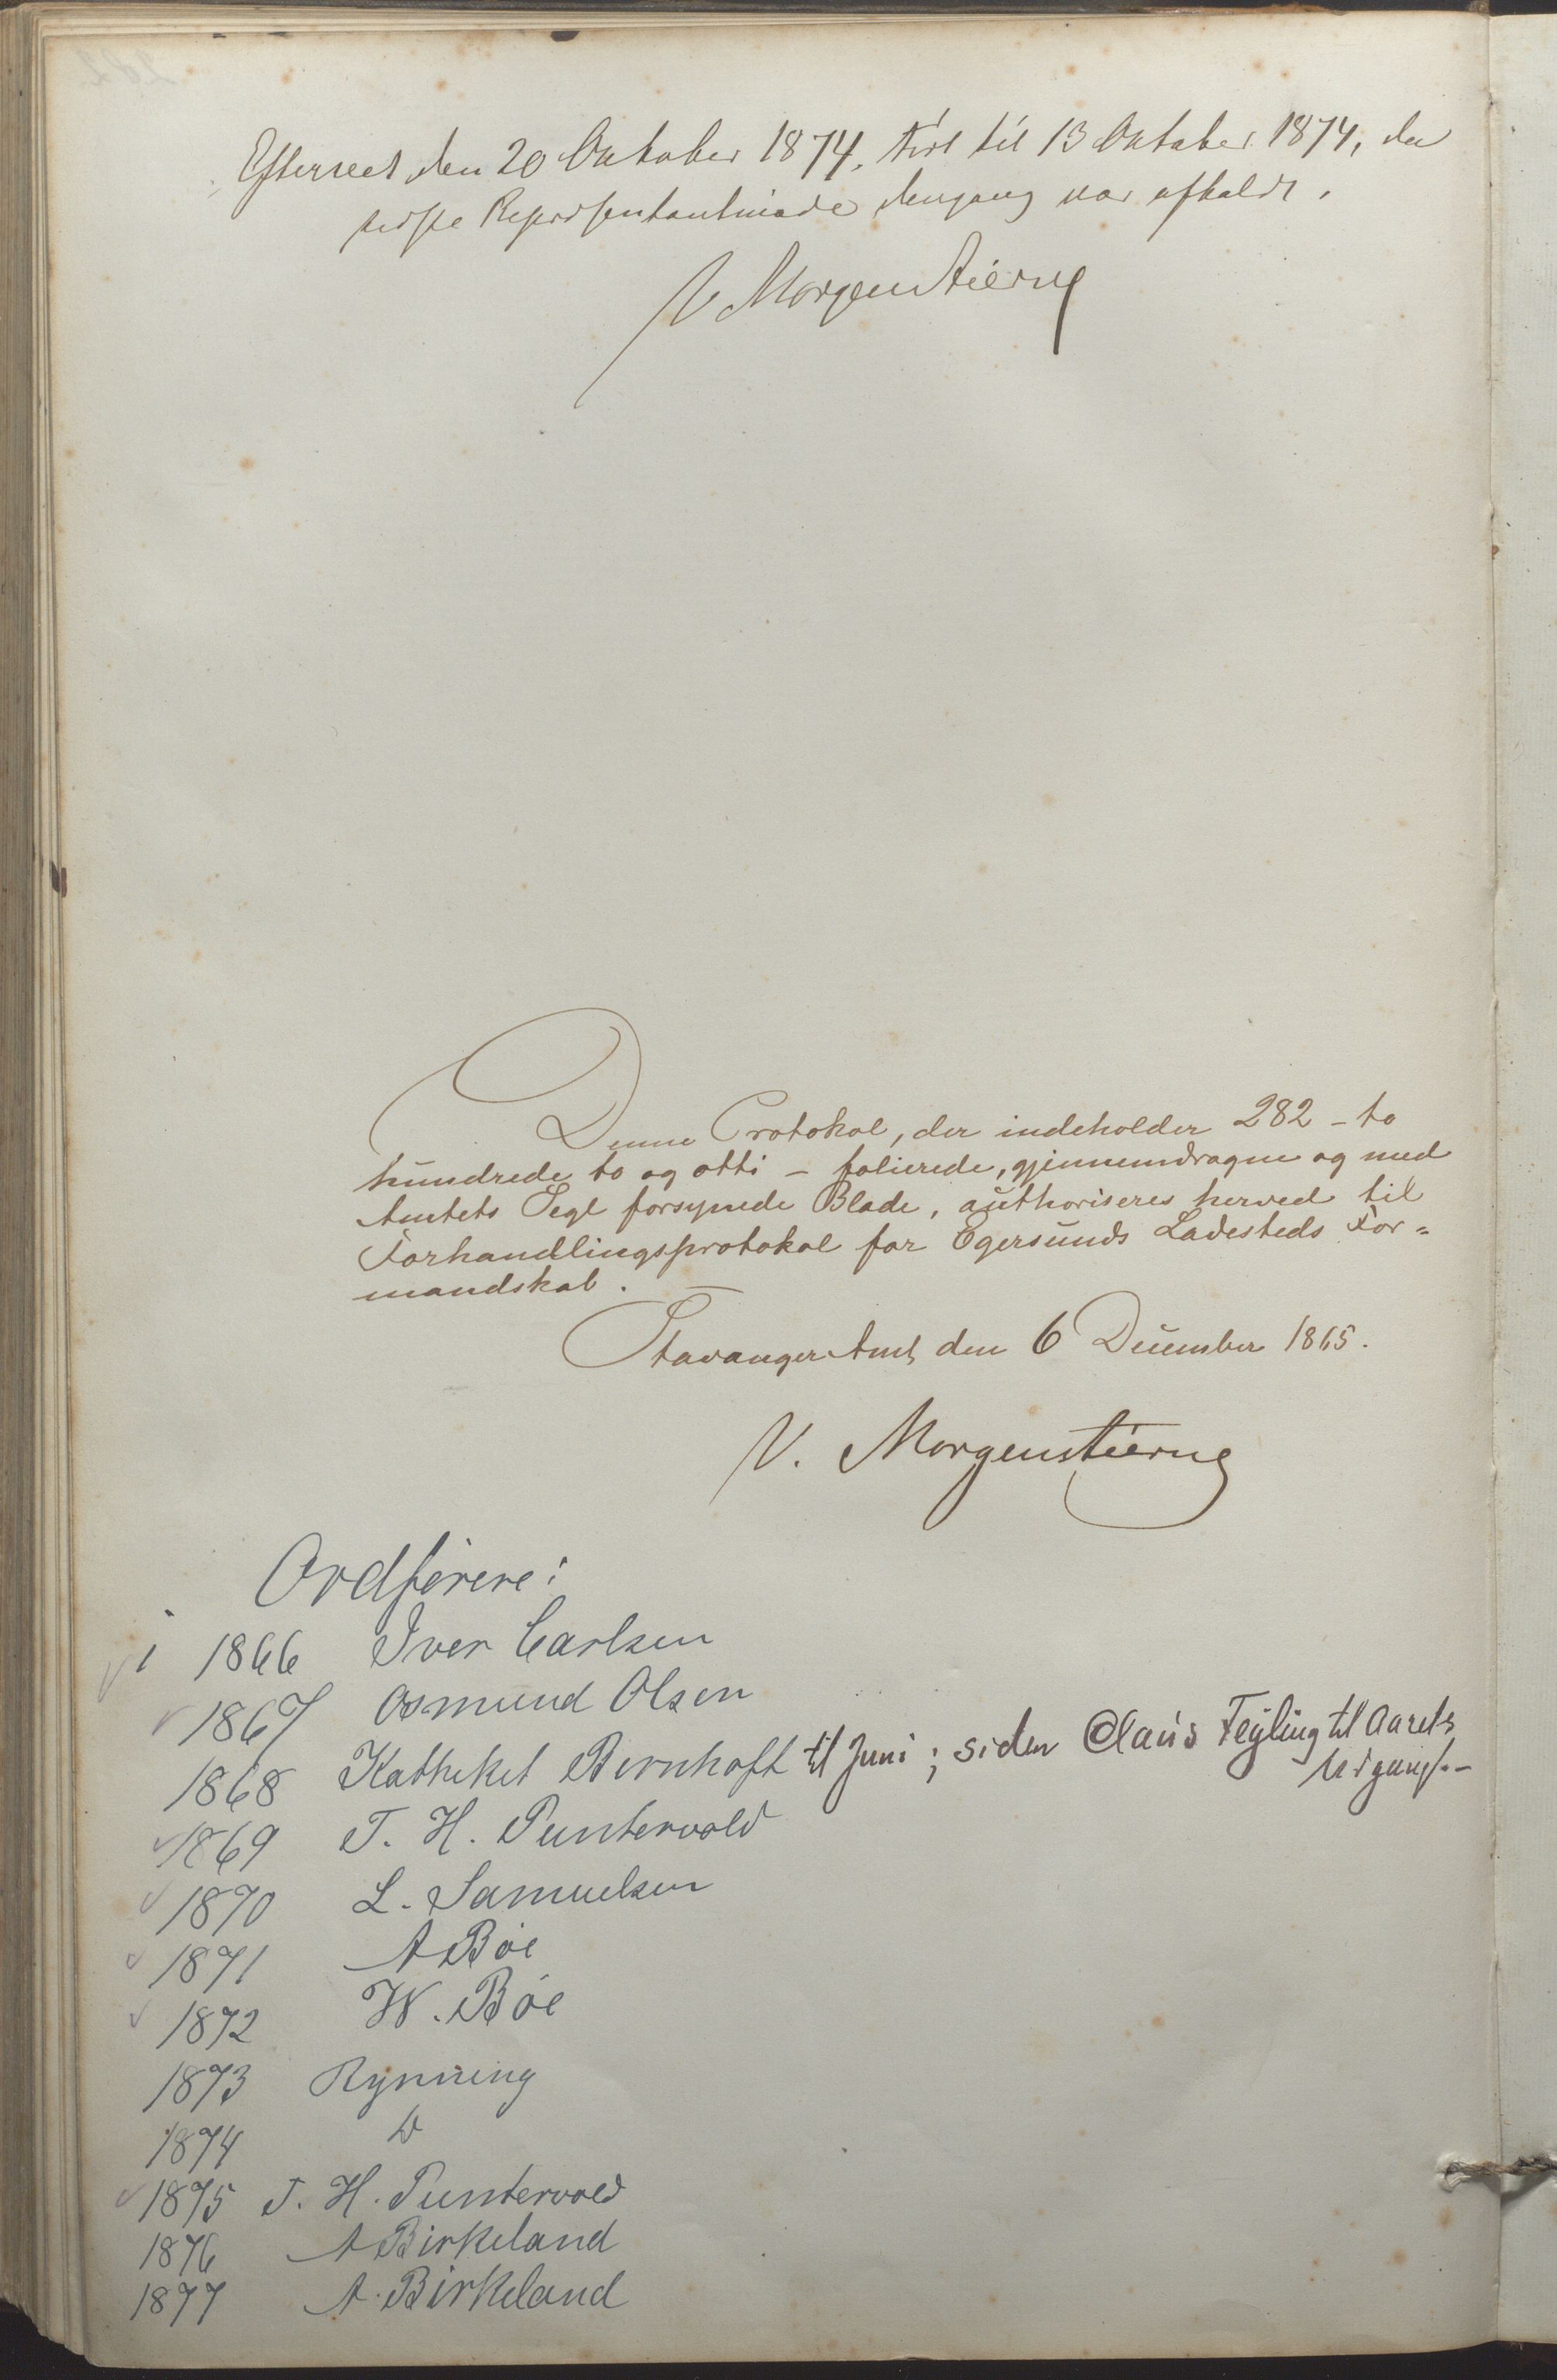 Efterseet den 20 Oktober 1874, ført til 13 Oktober 1874, da
sidste Repræsentantmøde dengang var afholdt.
V Morgenstierne
Denne Protokol, der indeholder 282 - to
hundrede to og otti - folierede, gjennemdragne og med
Amtets Segl forsynede Blade, authoriseres herved til
Forhandlingsprotokol for Egersunds Ladesteds For=
mandskab.
Stavanger Amt, den 6 December 1865.
V. Morgenstierne
Ordførere:
i 1866 Iver Carlsen
1867 Osmund Olsen
1868 Katheket Bernhoft til Juni; siden Claus Feyling til Aarets
Udgang.-
1869 T. H. Puntervold
1870 L. Samuelsen
1871 A Bøe
1872 W. Bøe
1873 Rynning
1874 D
1875 T. H. Puntervold
1876 A Birkeland
1877 A. Birkeland